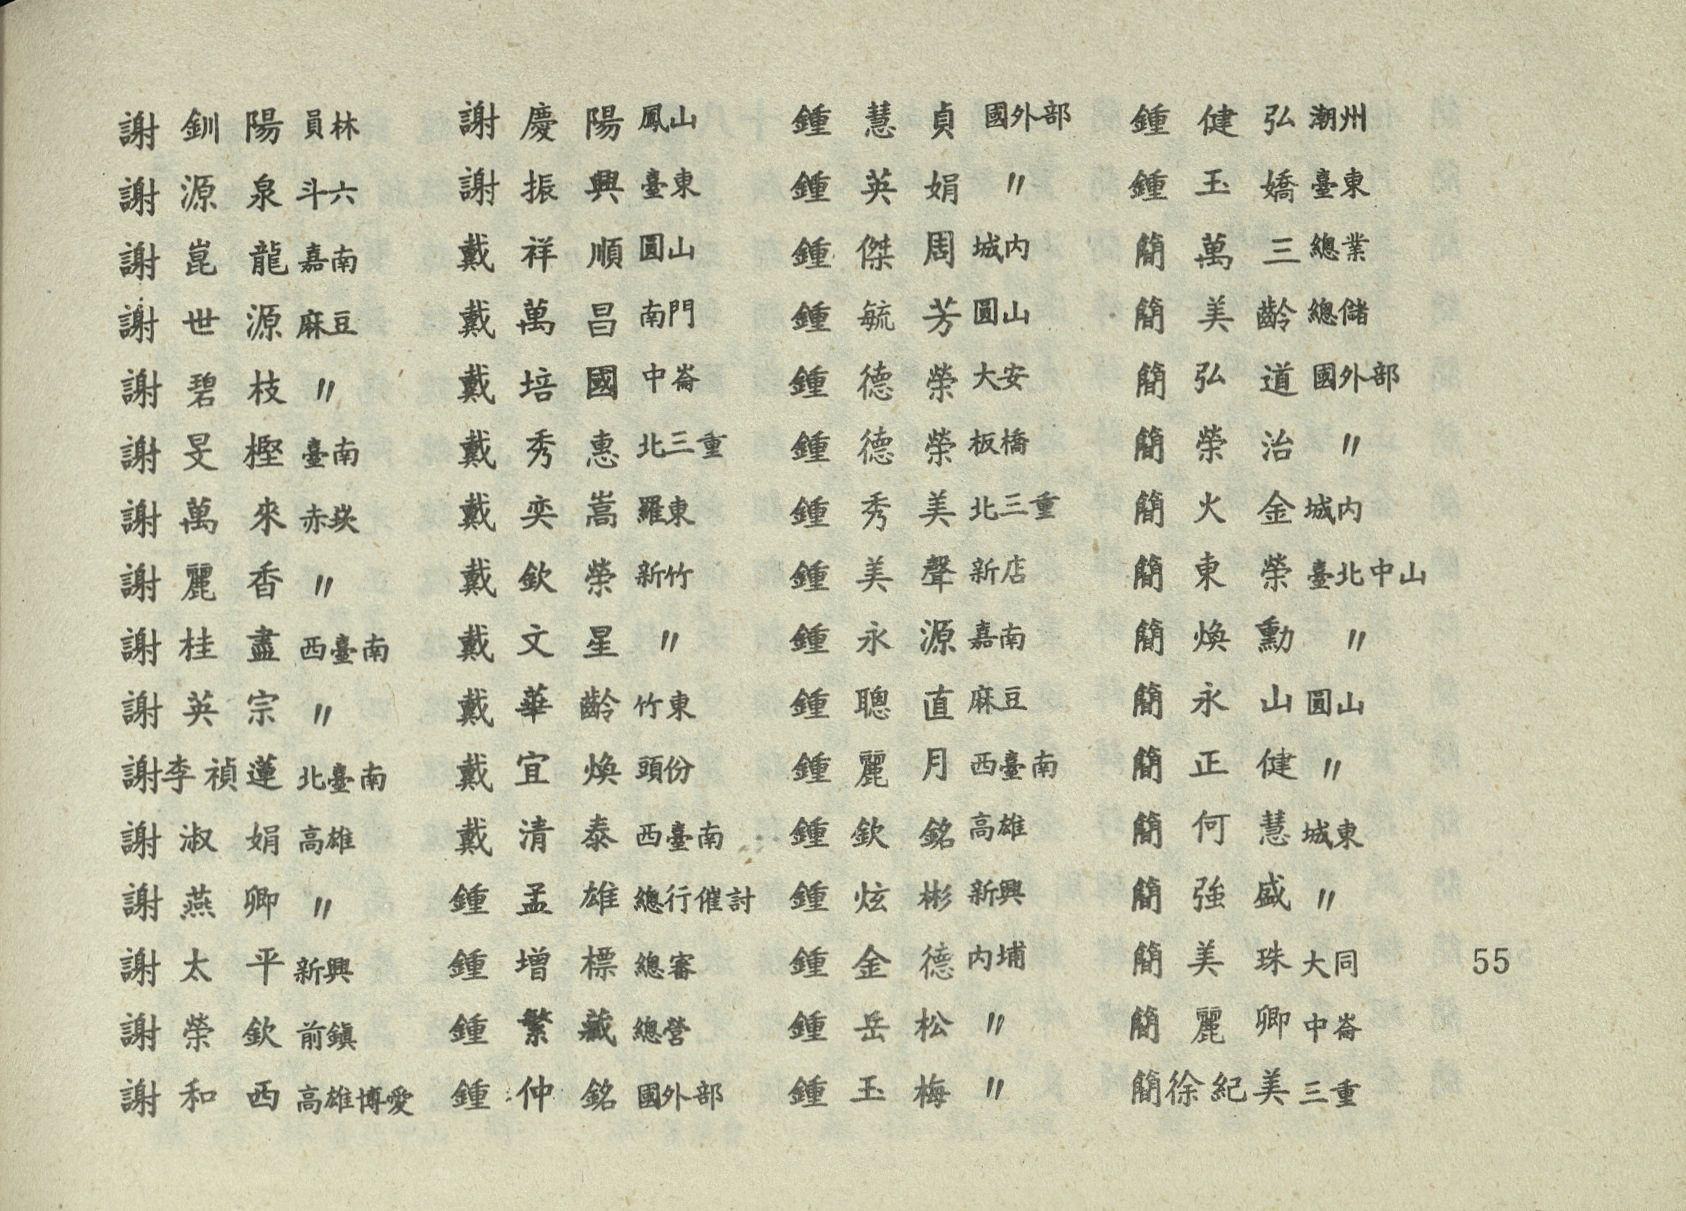 謝釧陽 員林
謝源泉 斗六
謝崑龍 嘉南
謝世源 麻豆
謝碧枝 〃
謝旻樫 臺南
謝萬來 赤崁
謝麗香 〃
謝桂盡 西臺南
謝英宗 〃
謝李禎蓮 北臺南
謝淑娟 高雄
謝燕卿 〃
謝太平 新興
謝榮欽 前鎮
謝和西 高雄博愛
謝慶陽 鳳山
謝振興 臺東
戴祥順 圓山
戴萬昌 南門
戴培國 中崙
戴秀惠 北三重
戴奕嵩 羅東
戴欽榮 新竹
戴文星 〃
戴華齡 竹東
戴宜煥 頭份
戴清泰 西臺南
鍾孟雄 總行催討
鍾增標 總審
鍾繁藏 總營
鍾仲銘 國外部
鍾慧貞 國外部
鍾英娟 〃
鍾傑周 城內
鍾毓芳 圓山
鍾德榮 大安
鍾德榮 板橋
鍾秀美 北三重
鍾美聲 新店
鍾永源 嘉南
鍾聰直 麻豆
鍾麗月 西臺南
鍾欽銘 高雄
鍾炫彬 新興
鍾金德 內埔
鍾岳松 〃
鍾玉梅 〃
鍾健弘 潮州
鍾玉嬌 臺東
簡萬三 總業
簡美齡 總儲
簡弘道 國外部
簡榮治 〃
簡火金 城內
簡東榮 臺北中山
簡煥勳 〃
簡永山 圓山
簡正健 〃
簡何慧 城東
簡強盛 〃
簡美珠 大同
簡麗卿 中崙
簡徐紀美 三重
55